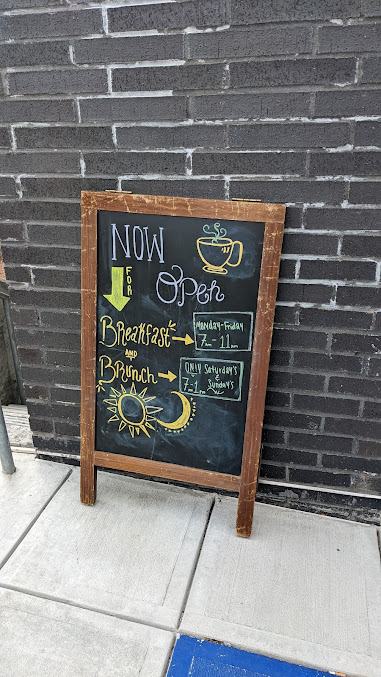 NOW
FOR
Open
Breakfast
AND
Brunch
Monday-Friday
7am-11am
ONLY Saturday's
&
7-1 Sunday's